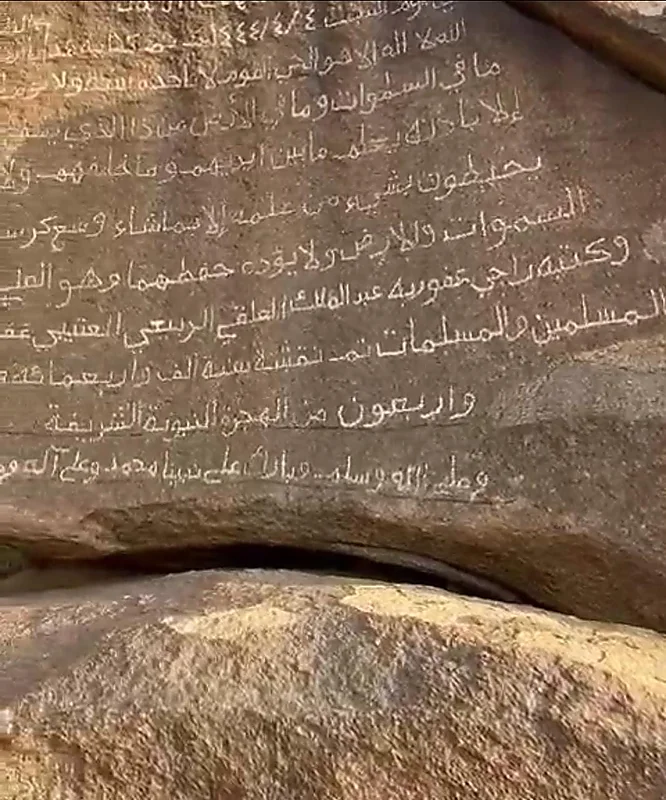 يوم السبت ٤/٤/٤٤٤ تمت كتابة
الله لا اله الا هو الحي القيوم لا تاخذه سنة ولا
ما في السموات وما في الأرض من ذا الذي يشفع
إلا باذنه يعلم ما بين ايديهم وما خلفهم ولا
يحيطون بشيء من علمه إلا بما شاء وسع كرسـ
السموات والارض ولا يؤده حفظهما وهو العلي
وكتبه راجي عفو ربه عبدالملك العلقي الربيعي العتيبي
المسلمين والمسلمات تمت نقشه سنة الف واربعمائة
واربعون من الهجرة النبوية الشريفة
وصلى الله وسلم .. وبارك على نبينا محمد وعلى آله